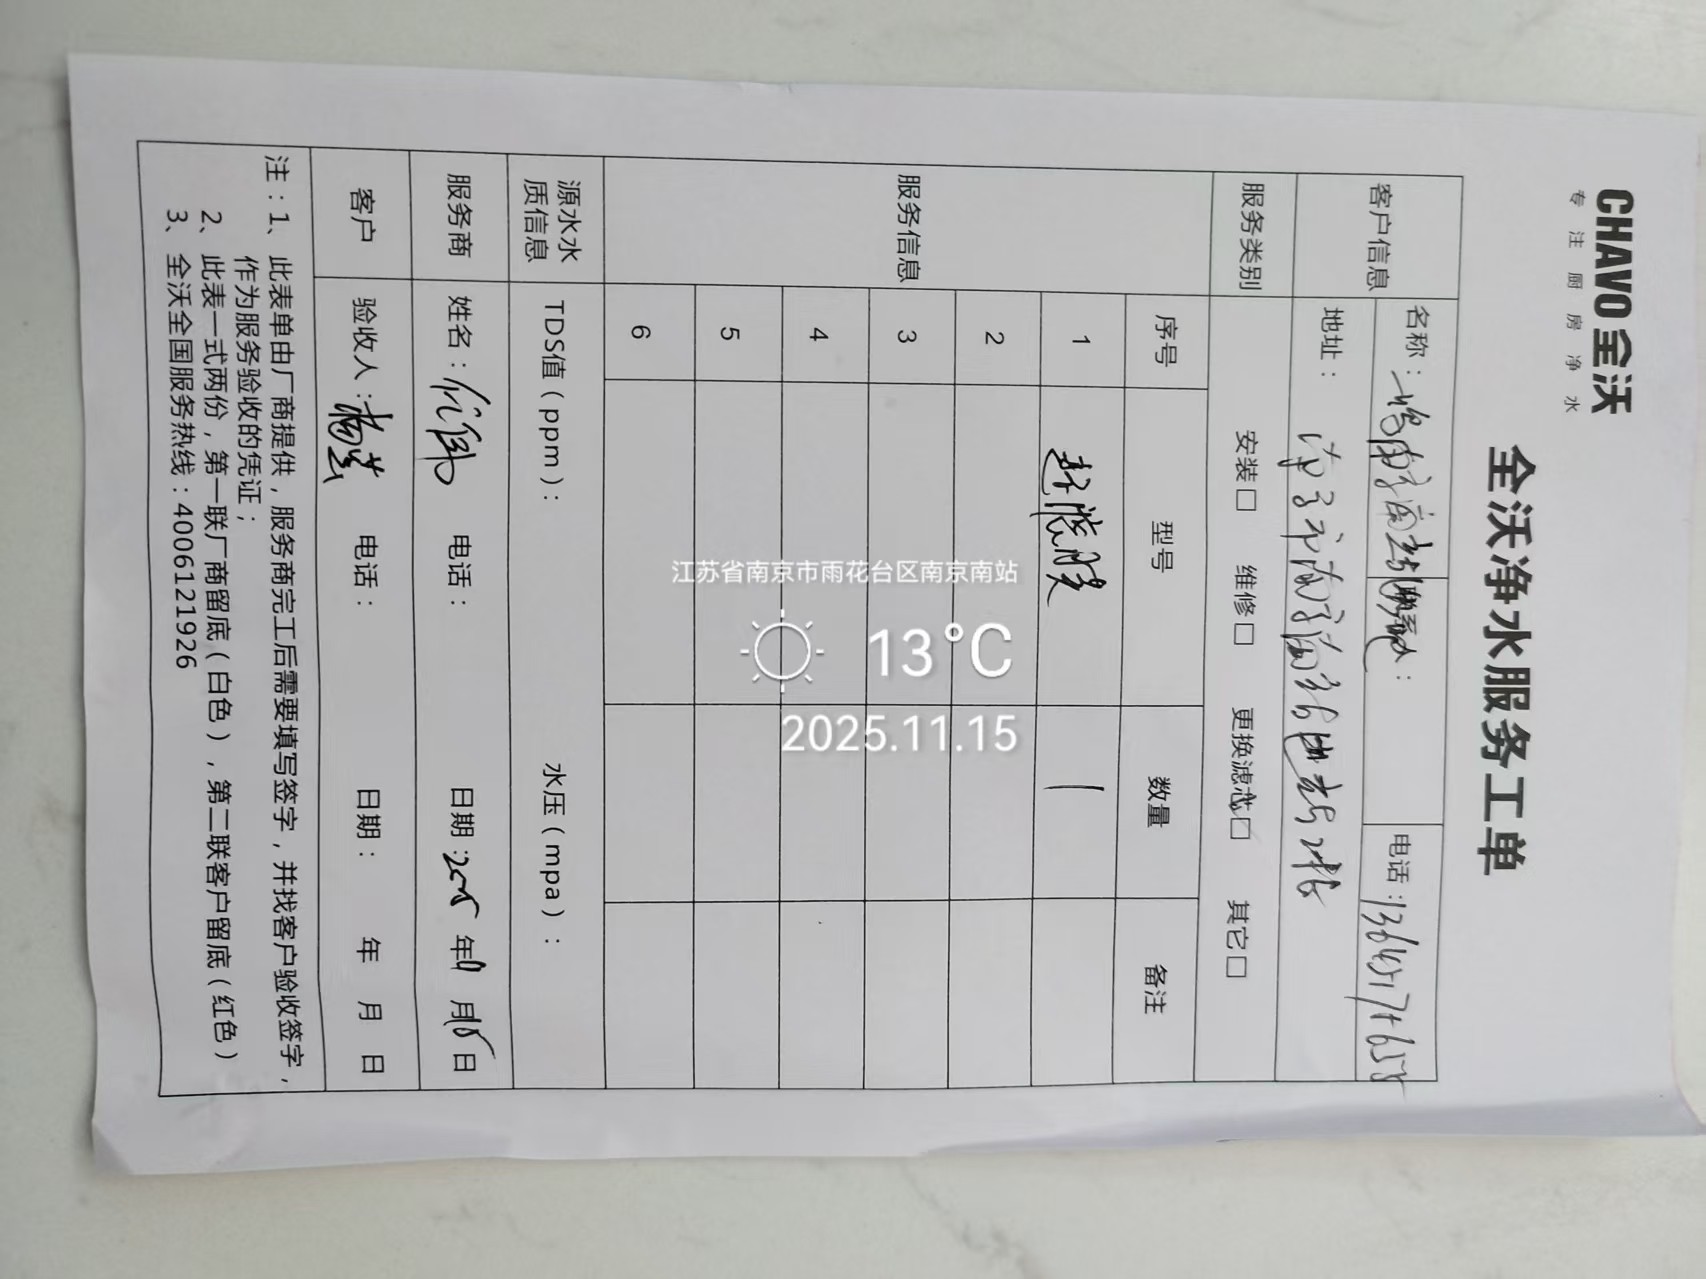 CHAVO 全沃
专注厨房净水
全沃净水服务工单
客户信息
名称： 联系人： 电话：
地址：
服务类别 安装□ 维修□ 更换滤芯□ 其它□
服务信息
序号 型号 数量 备注
1 超滤膜 1
2
3
4
5
6
源水水质信息 TDS值（ppm）： 水压（mpa）：
服务商 姓名： 电话： 日期：2025年11月15日
客户 验收人： 电话： 日期： 年 月 日
注：1、此表单由厂商提供，服务商完工后需要填写签字，并找客户验收签字，
作为服务验收的凭证；
2、此表一式两份，第一联厂商留底（白色），第二联客户留底（红色）
3、全沃全国服务热线：4006121926
江苏省南京市雨花台区南京南站
13°C
2025.11.15